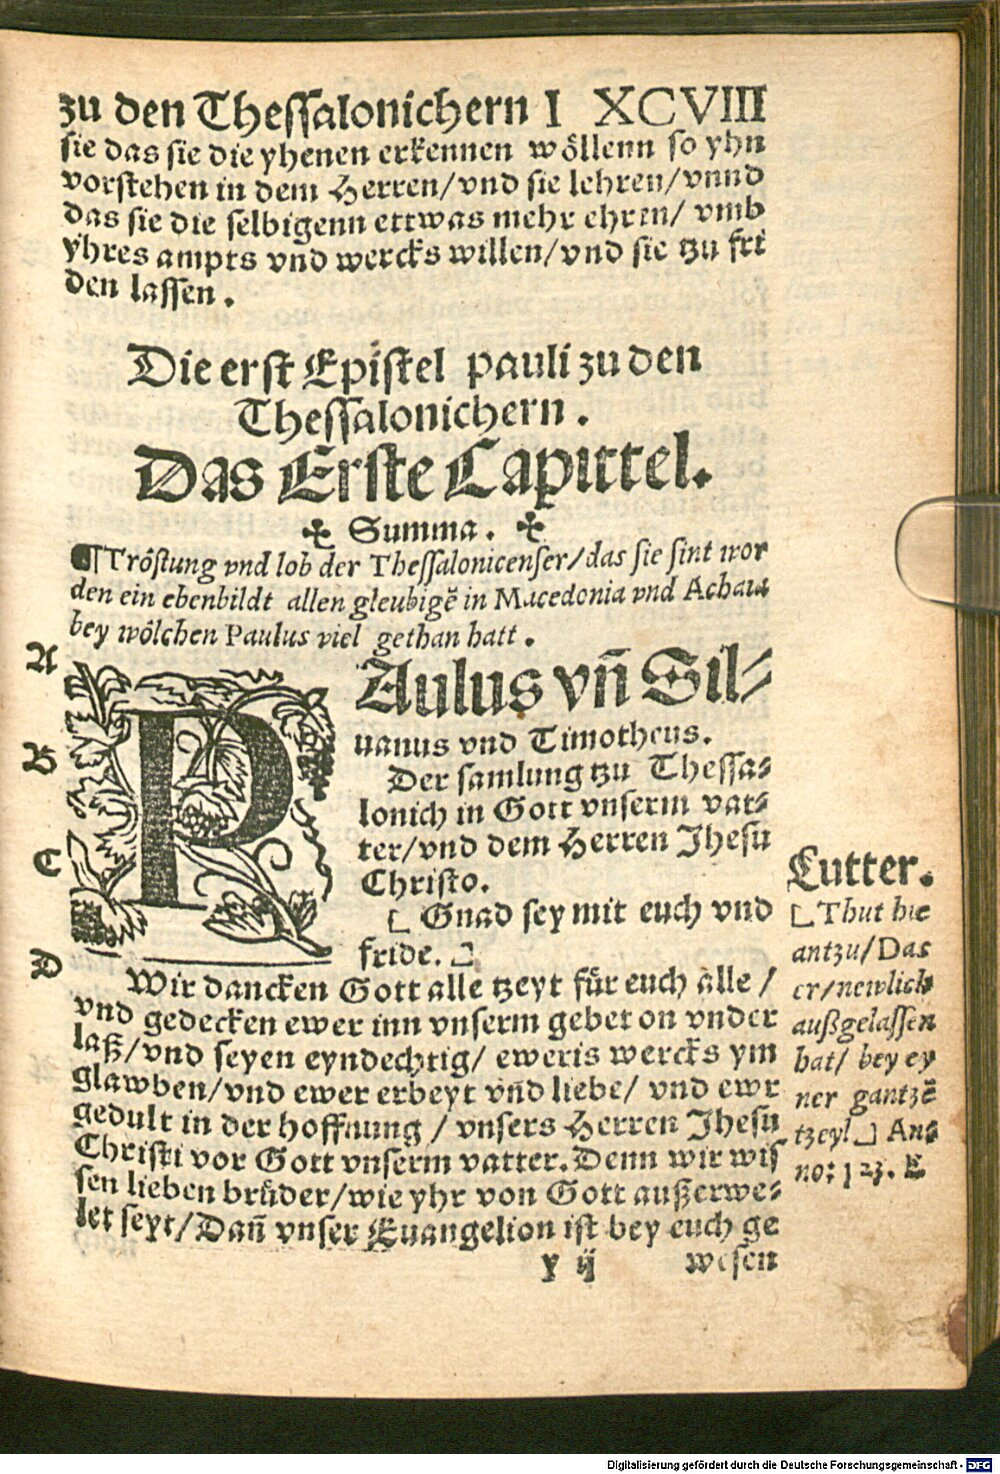 zu den Thessalonichern I XCVIII
sie das sie die yhenen erkennen wöllenn so yhn
vorstehen in dem Herren/vnd sie lehren/vnnd
das sie die selbigenn ettwas mehr ehren/ vmb
yhres ampts vnd wercks willen/vnd sie tzu fri
den lassen.
Die erst Epistel pauli zu den
Thessalonichern.
Das Erste Capittel.
✣ Summa. ✣
¶Tröstung vnd lob der Thessalonicenser/das sie sint wor
den ein ebenbildt allen gleubigē in Macedonia vnd Achaia
bey wölchen Paulus viel gethan hatt.
A
B
C
D
PAulus vñ Sil⸗
uanus vnd Timotheus.
Der samlung tzu Thessa⸗
lonich in Gott vnserm vat⸗
ter/vnd dem Herren Jhesu
Christo.
[ Gnad sey mit euch vnd
fride. ]
Wir dancken Gott alle tzeyt für euch alle /
vnd gedecken ewer inn vnserm gebet on vnder
laß/vnd seyen eyndechtig/ eweris wercks ym
glawben/vnd ewer erbeyt vnd liebe/ vnd ewr
gedult in der hoffnung / vnsers Herren Jhesu
Christi vor Gott vnserm vatter. Denn wir wis
sen lieben brüder/wie yhr von Gott außerwe⸗
let seyt/Dañ vnser Euangelion ist bey euch ge
y ij wesen
Lutter.
[Thut hie
antzu/Das
er/newlich
außgelassen
hat/ bey ey
ner gantzē
tzeyl] An⸗
no: 123. E